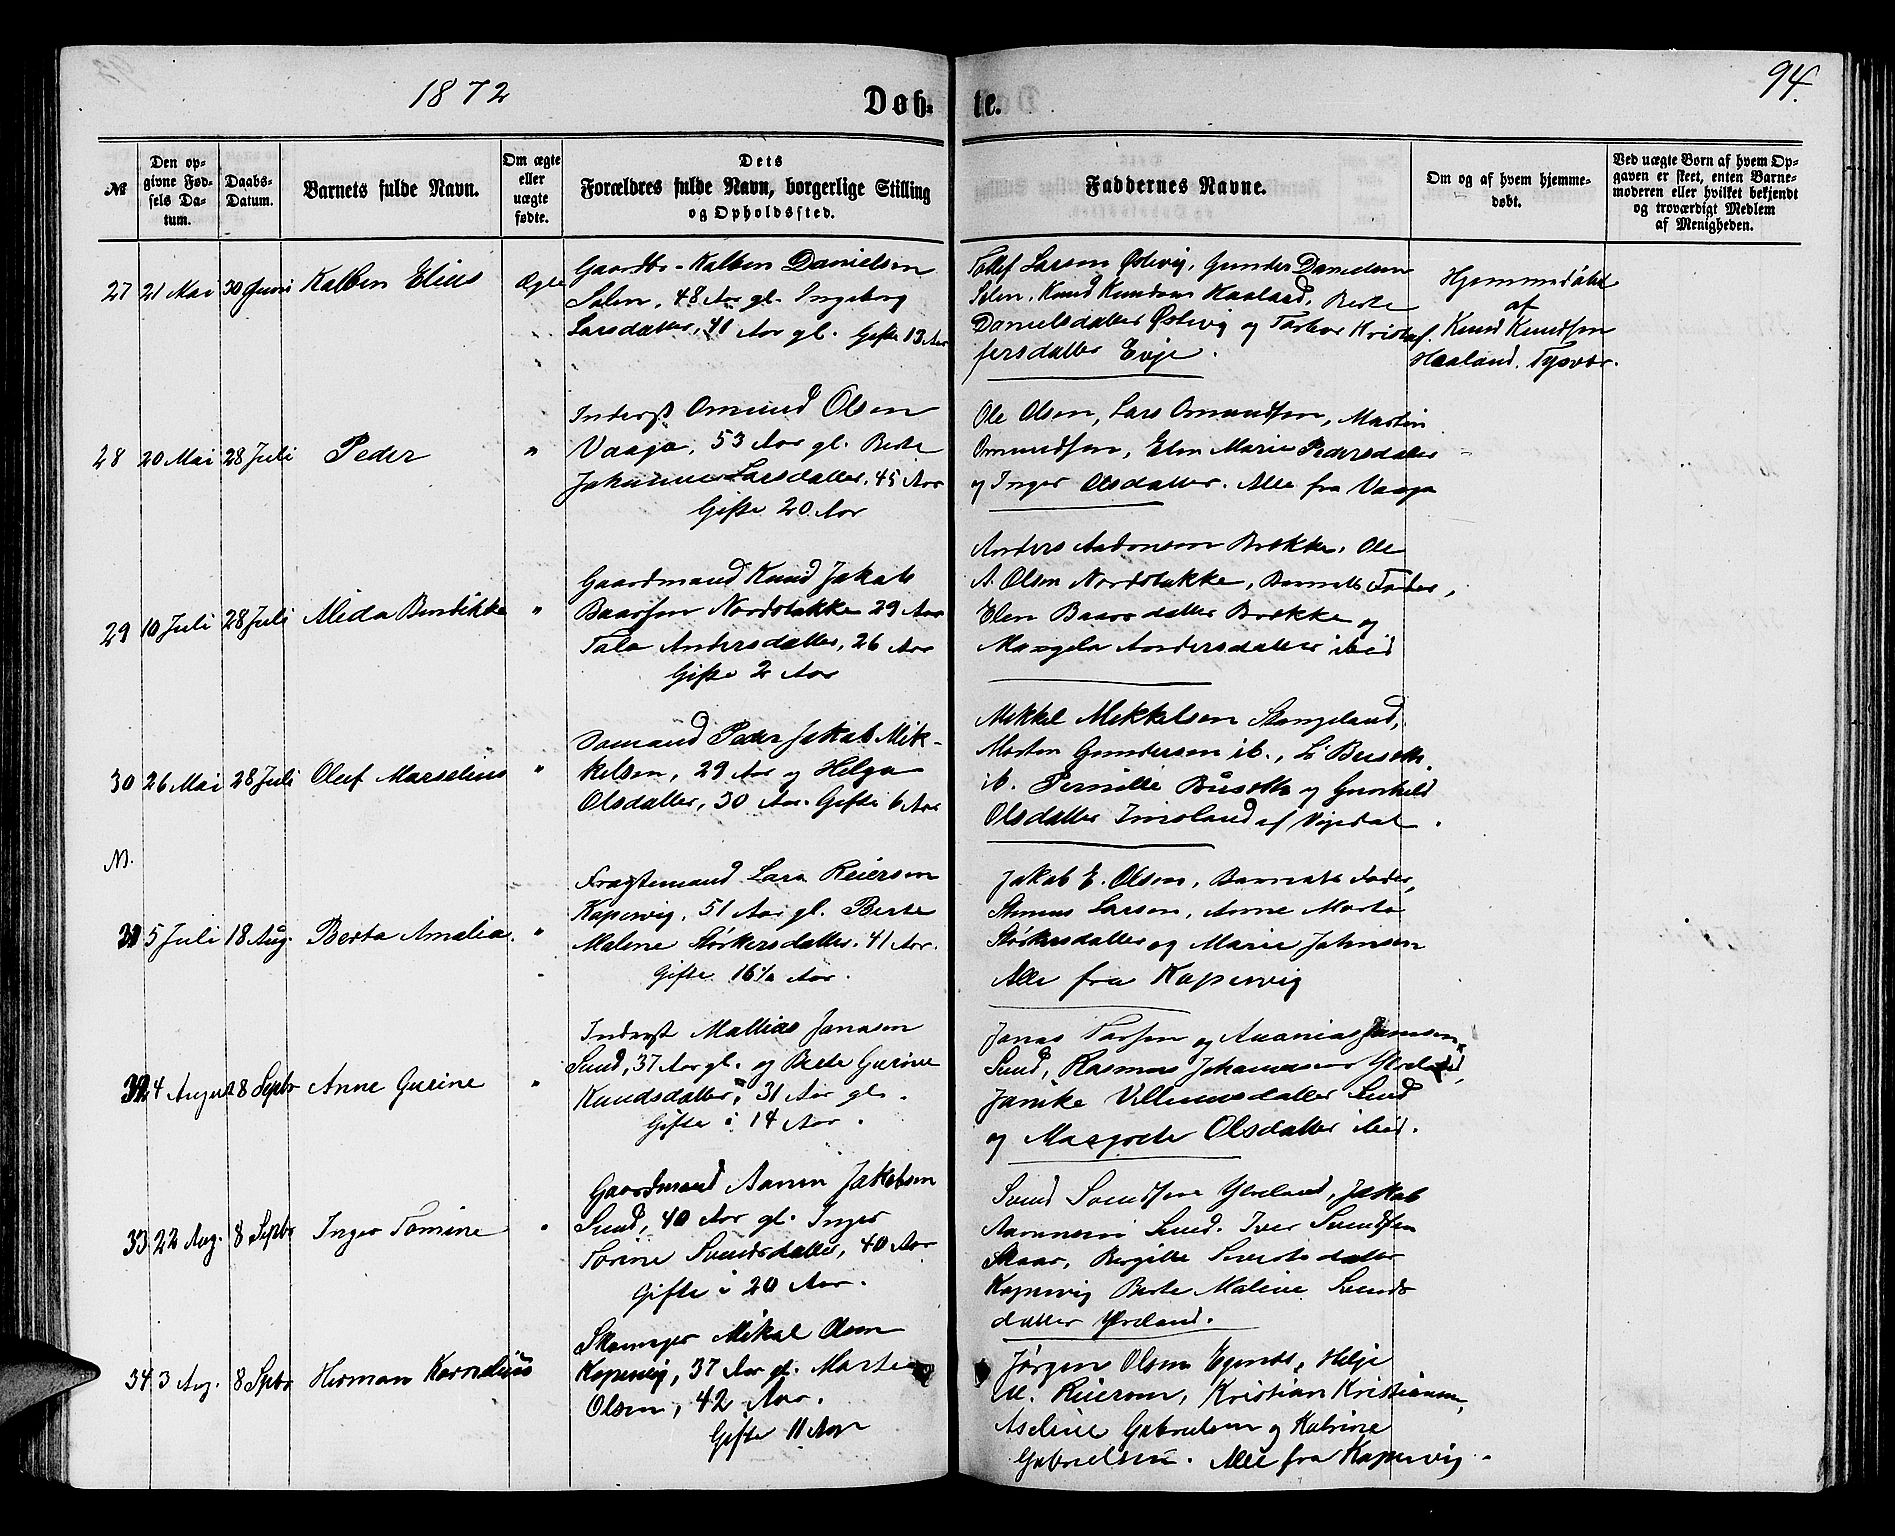 1872
Døb-
te.
94.
№
Den op-
givne Fød-
sels Da-
tum.
Daabs-
Datum.
Barnets fulde Navn.
Om ægte
eller
uægte
fødte.
Dets
Forældres fulde Navn, borgerlige Stilling
og Opholdssted.
Faddernes Navne.
Om og af hvem hjemme-
døbt.
Ved uægte Børn af hvem Op-
gaven er skeet, enten Barne-
moderen eller hvilket bekjendt
og troværdigt Medlem
af Menigheden.
27 21 Mai 30 Juni Kalben Elius Ægte
Gaardbr. Kalben Danielsen
48 Aar gl. Ingeborg
Larsdatter, 41 Aar gl. Gifte 13 Aar
Tollef Larsen Østevig, Gunder Danielsen
Knud Knudsen Haaland, Berte
Danielsdatter Østevig og Kristof-
fersdatter Evje.
Hjemmedøbt
af
Knud Knudsen
Haaland, Tysvær.
28 20 Mai 28 Juli Peder "
Inderst Omund Olsen
Vaaga, 53 Aar gl. Berte
Johanne Larsdatter, 45 Aar
Gifte 20 Aar
Ole Olsen, Lars Omundsen, Martin
Omundsen, Elen Marie Pedersdatter
og Inger Olsdatter. Alle fra Vaaga
29 10 Juli 28 Juli Alida Bendikke "
Gaardmand Knud Jakob
Baarsen Nordstokke 29 Aar
Tala Andersdatter, 26 Aar
Gifte 2 Aar
Anders Brekke, Ole
A. Olsen Nordstokke, Barnets Fader,
Elen Baarsdatter Brekke og
Mangela Andersdatter ibid
30 26 Mai 28 Juli Oluf Marselius "
Peder Jakob Mik-
kelsen, 29 Aar og Helga
Olsdatter, 30 Aar. Gifte 6 Aar
Mikkel Mikkelsen Stangeland,
Morten Gundersen ib.,
ib. Pernille og Gunhild
Olsdatter Imsland af Vigedal.
N.
31 5 Juli 18 Aug. Berta Amalia. "
Fragtemand Lars Reiersen
Kopervig, 51 Aar gl. Berte
Malene Størkersdatter. 41 Aar.
Gifte 16½ Aar.
Jakob E. Olsen, Barnets Fader,
Larsen, Anne Marta
Størkersdatter og Marie Johnsen
Alle fra Kopervig
32 4 August 8 Septbr Anne Gurine "
Inderst Mathias Jonasen
Sund, 37 Aar gl. og Berte Gurine
Knudsdatter, 31 Aar gl.
Gifte i 14 Aar.
Jonas og Ananias
Sund, Rasmus Johannesen
Janike Villumsdatter Sund
og Margrete Olsdatter ibid.
33 22 Aug. 8 Septbr Inger Tomine "
Gaardmand Aamen Jakobsen
Sund, 40 Aar gl. Inger
Sorine Svendsdatter, 40 Aar
Gifte i 20 Aar.
Svend Svendsen Jakob
Aamensen Sund. Iver Svendsen
Skaar, Birgitte Sivertsdatter
Kopervig Berte Malene Svends-
datter
34 3 Aug. 8 Septbr Herman Kornelius
Skomager Mikal Olsen
Kopervig, 37 Aar gl. Marte
Olsen, 42 Aar.
Gifte 11 Aar
Jørgen Olsen Helje
M. Reiersen, Kristian Kristiansen,
Aseline Gabrielsen og Katrine
Gabrielsen. Alle fra Kopervig.